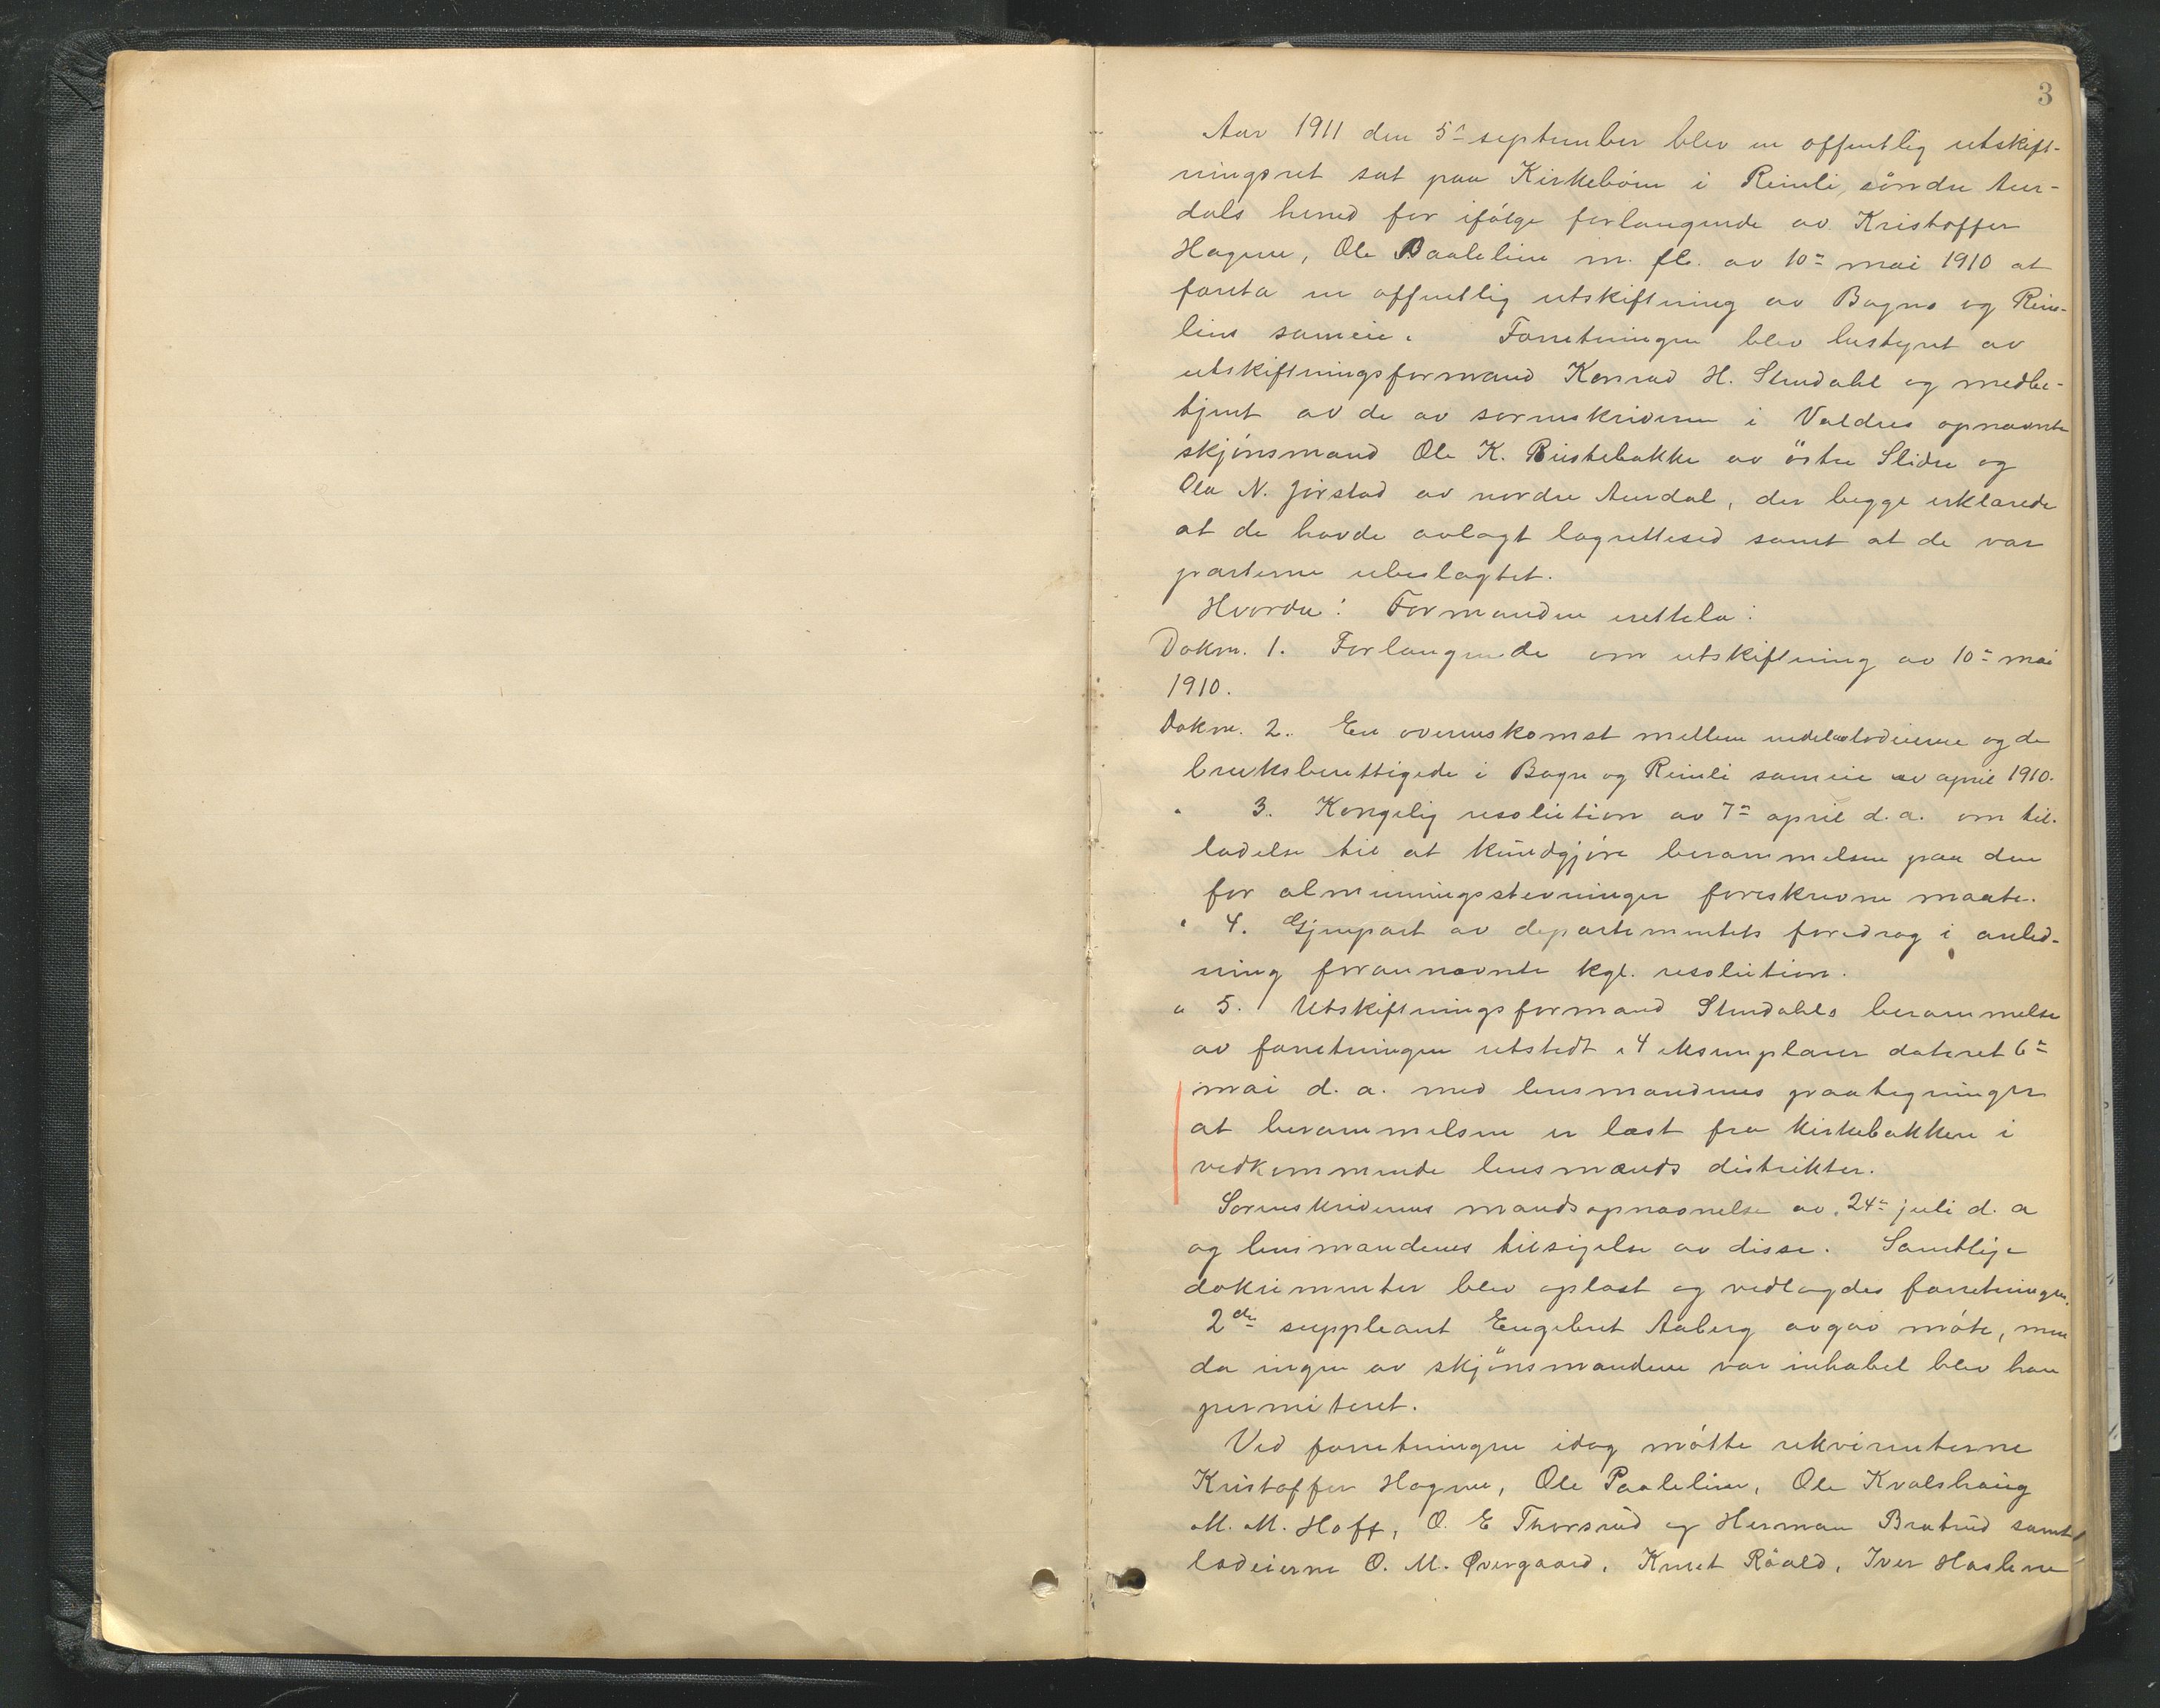 3
Aar 1911 den 5te september blev en offentlig utskift-
ningsret sat paa Kirkeböen i Reinli, söndre Aur-
dals herred for ifölge forlangende av Kristoffer
Hagene, Ole Baalelien m. fl. av 10de mai 1910 at
foreta en offentlig utskiftning av Bagns og Rein-
liens sameie. Forretningen blev bestyret av
utskiftningsformand Konrad H. Stendahl og medbe-
tjent av de av sorenskriveren i Valdres opnævnte
skjönsmænd Ole K. Rustebakke av östre Slidre og
Ola N. Jörstad av nordre Aurdal, der begge erklærede
at de havde avlagt lagrettesed samt at de var
parterne ubeslægtet.
Hvorda: Formanden erettela:
Dokm. 1. Forlangende om utskiftning av 10de mai
1910.
Dokm. 2. En overenskomst mellem lodeierne og de
bruksberettigede i Bagn og Reinli sameie av april 1910.
" 3. Kongelig resolution av 7de april d. a. om til-
ladelse til at kundgjöre berammelsen paa den
for almenningsstevninger foreskrevne maate.
" 4. Gjenpart av departementets foredrag i anled-
ning forannævnte kgl. resolution.
" 5. Utskiftningsformand Stendahls berammelse
av forretningen utstedt i 4 eksemplarer dateret 6te
mai d. a. med lensmændenes paategninger
at berammelsen er læst fra kirkebakken i
vedkommende lensmænds distrikter.
Sorenskriverens mandsopnævnelse av 24de juli d. a
og lensmandenes tilsigelse av disse. Samtlige
dokumenter blev oplæst og vedlagdes forretningen.
2den suppleant Engebret Aaberg avgav möte, men
da ingen av skjönsmændene var inhabel blev han
permiteret.
Ved forretningen idag mötte rekvirenterne
Kristoffer Hagene, Ole Paalelien, Ole Kvalshaug
M. M. Hoff, O. E Thorsrud og Herman Bratrud samt
lodeierne O. M. Øvergaard, Knut Röald, Iver Haslerne